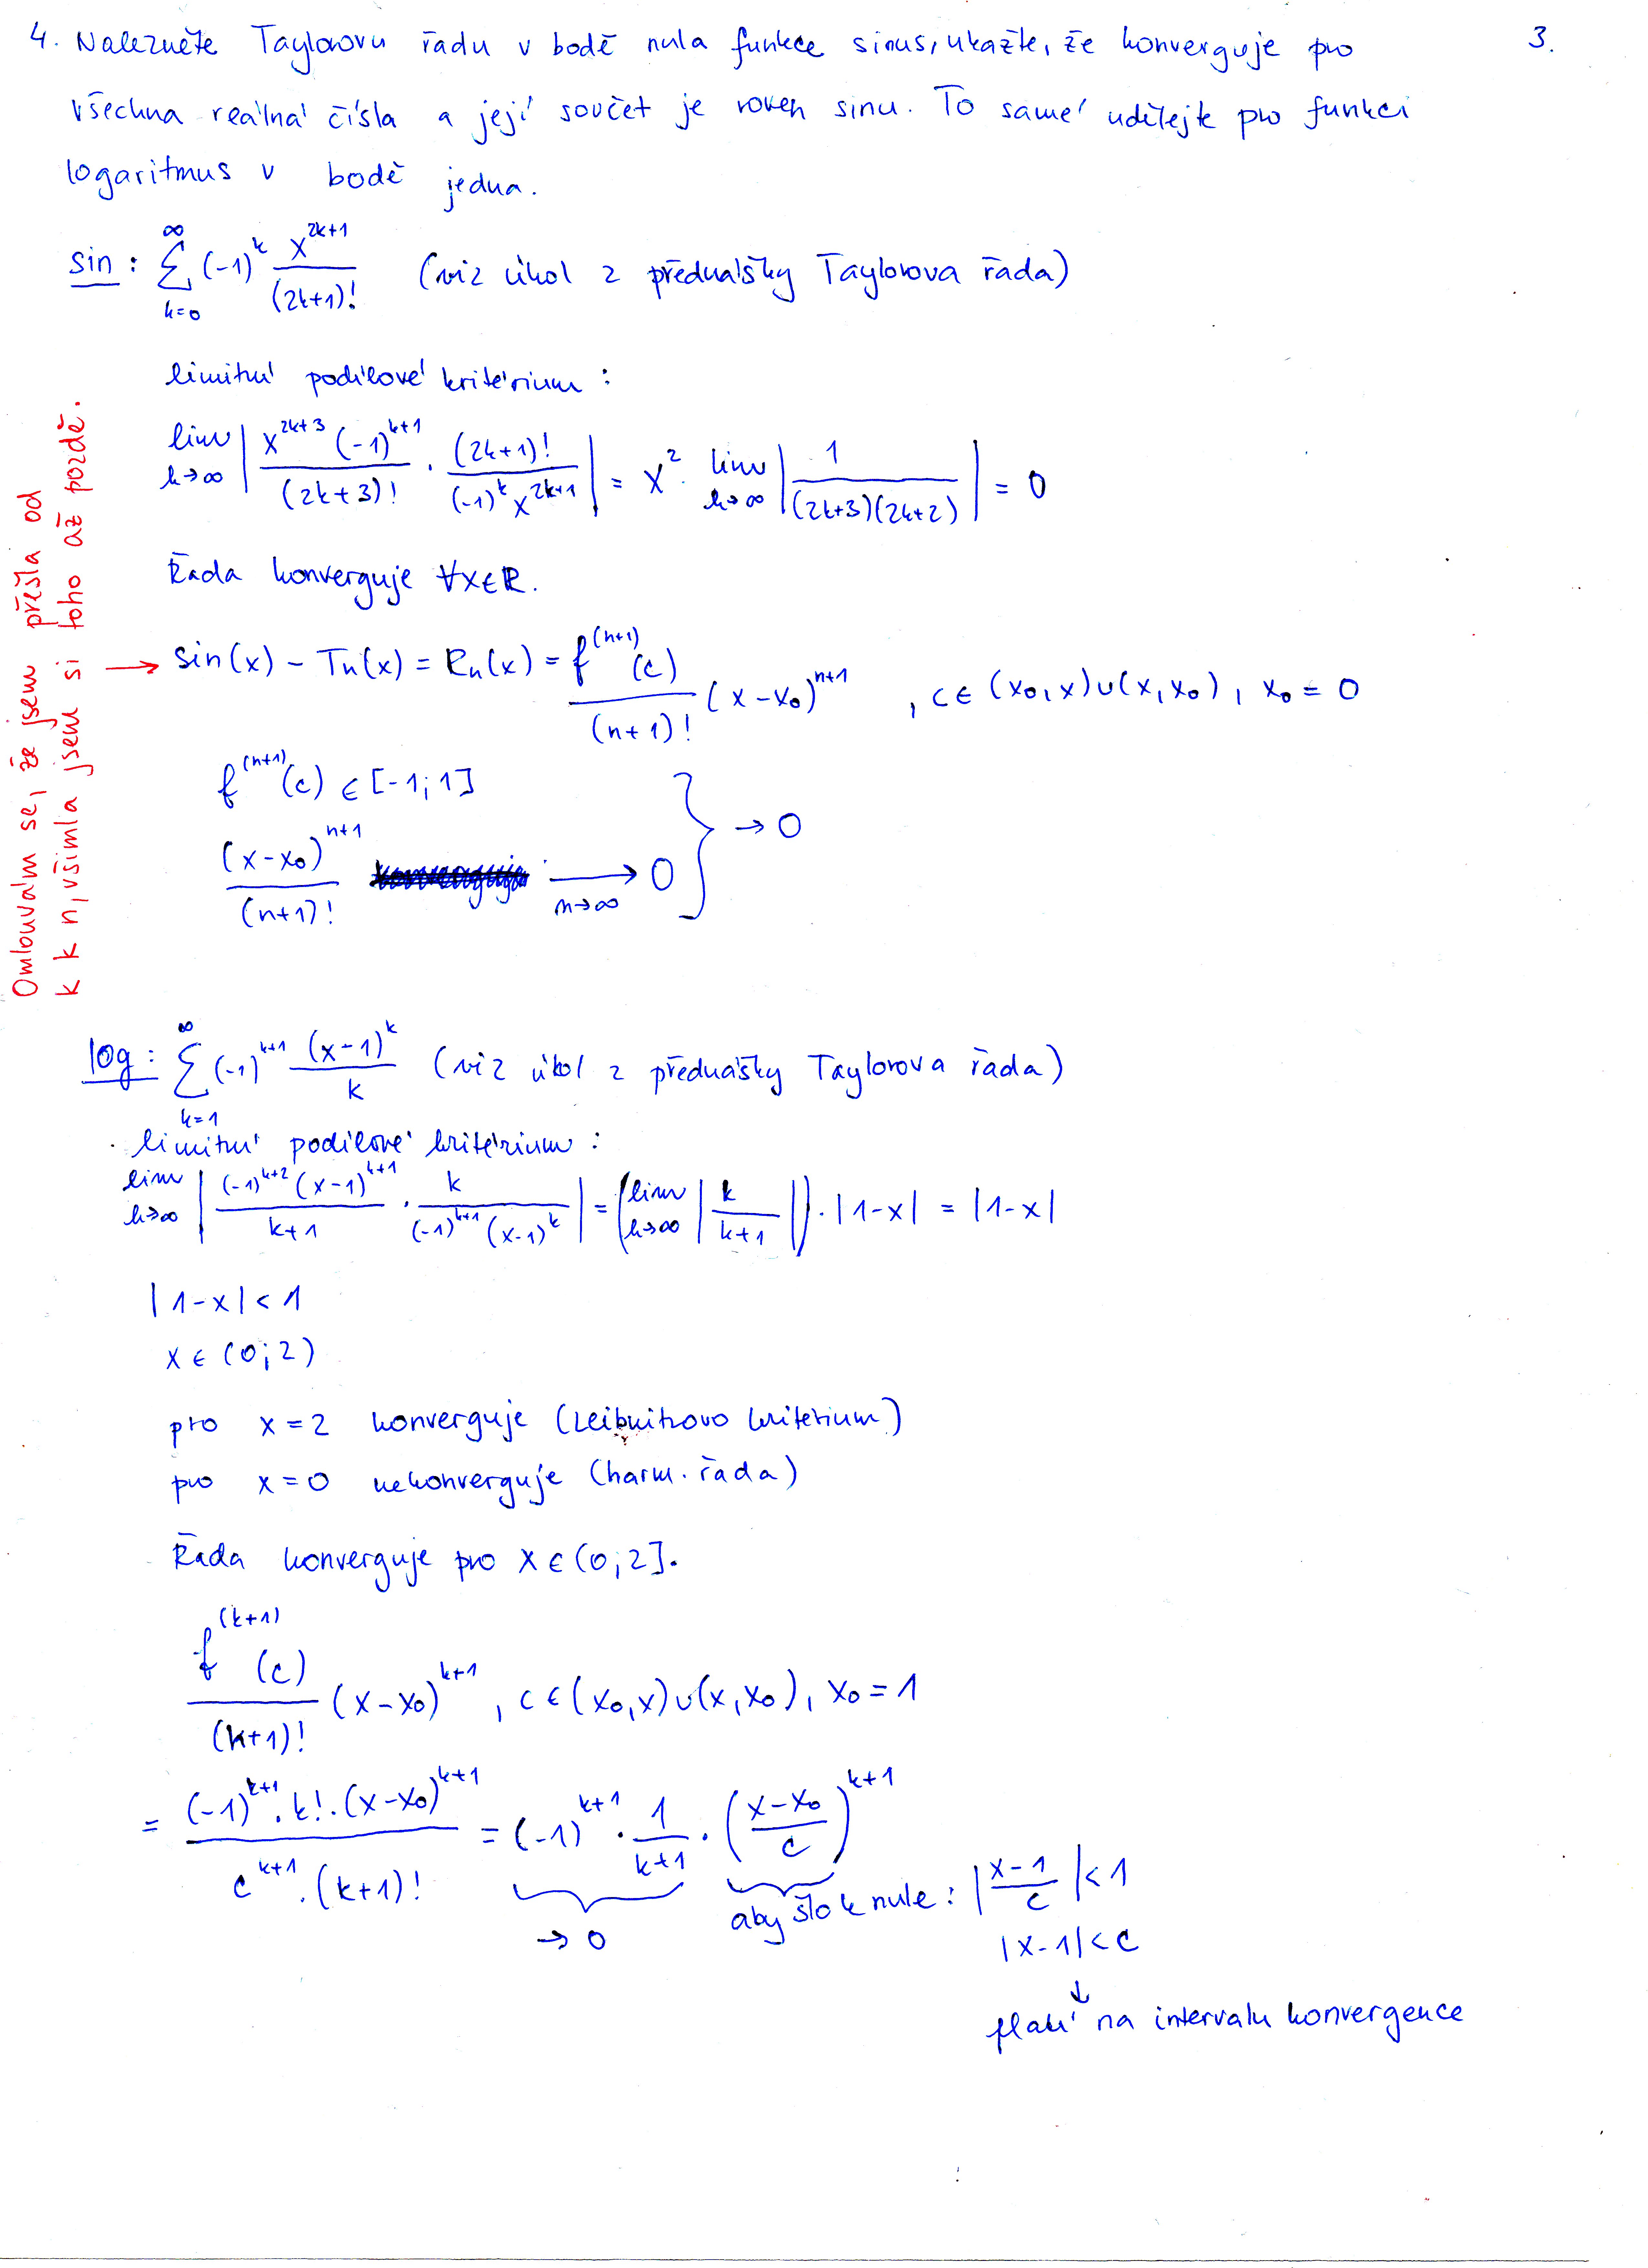 4. Nalezněte Taylorovu řadu v bodě nula funkce sinus, ukažte, že konverguje pro
3.
všechna reálná čísla a její součet je roven sinu. To samé udělejte pro funkci
logaritmus v bodě jedna.
sin: ∑_{k=0}^{∞} (-1)^k x^{2k+1}/(2k+1)! (viz úkol z přednášky Taylorova řada)
limitní podílové kritérium:
lim_{k→∞} | x^{2k+3} (-1)^{k+1}/(2k+3)! · (2k+1)!/((-1)^k x^{2k+1}) | = x^2 · lim_{k→∞} | 1/((2k+3)(2k+2)) | = 0
Řada konverguje ∀x∈R.
→ sin(x) - Tn(x) = Rn(x) = f^{(n+1)}(c)/(n+1)! (x-x₀)^{n+1}, c∈(x₀,x)∪(x,x₀), x₀ = 0
f^{(n+1)}(c) ∈ [-1;1]
(x-x₀)^{n+1}/(n+1)! →_{n→∞} 0 } → 0
Omlouvám se, že jsem přešla od
k k n, všimla jsem si toho až pozdě.
log: ∑_{k=1}^{∞} (-1)^{k+1} (x-1)^k/k (viz úkol z přednášky Taylorova řada)
limitní podílové kritérium:
lim_{k→∞} | (-1)^{k+2} (x-1)^{k+1}/(k+1) · k/((-1)^{k+1} (x-1)^k) | = (lim_{k→∞} | k/(k+1) |) · |1-x| = |1-x|
|1-x| < 1
x ∈ (0;2)
pro x = 2 konverguje (Leibnitzovo kriterium)
pro x = 0 nekonverguje (harm. řada)
Řada konverguje pro x ∈ (0;2].
f^{(k+1)}(c)/(k+1)! (x-x₀)^{k+1}, c∈(x₀,x)∪(x,x₀), x₀ = 1
= (-1)^{k+1} · k! · (x-x₀)^{k+1}/(c^{k+1} · (k+1)!) = (-1)^{k+1} · 1/(k+1) · ((x-x₀)/c)^{k+1}
→ 0
aby šlo k nule: |(x-1)/c| < 1
|x-1| < c
↓
platí na intervalu konvergence